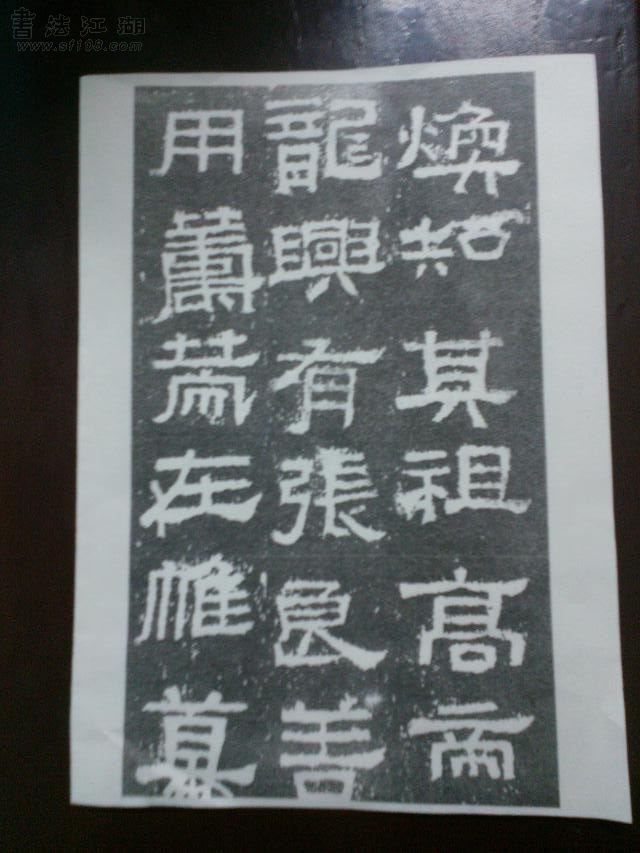 書法江湖
www.sf108.com
煥知其祖高帝
龍興有張良善
用籌策在帷幕